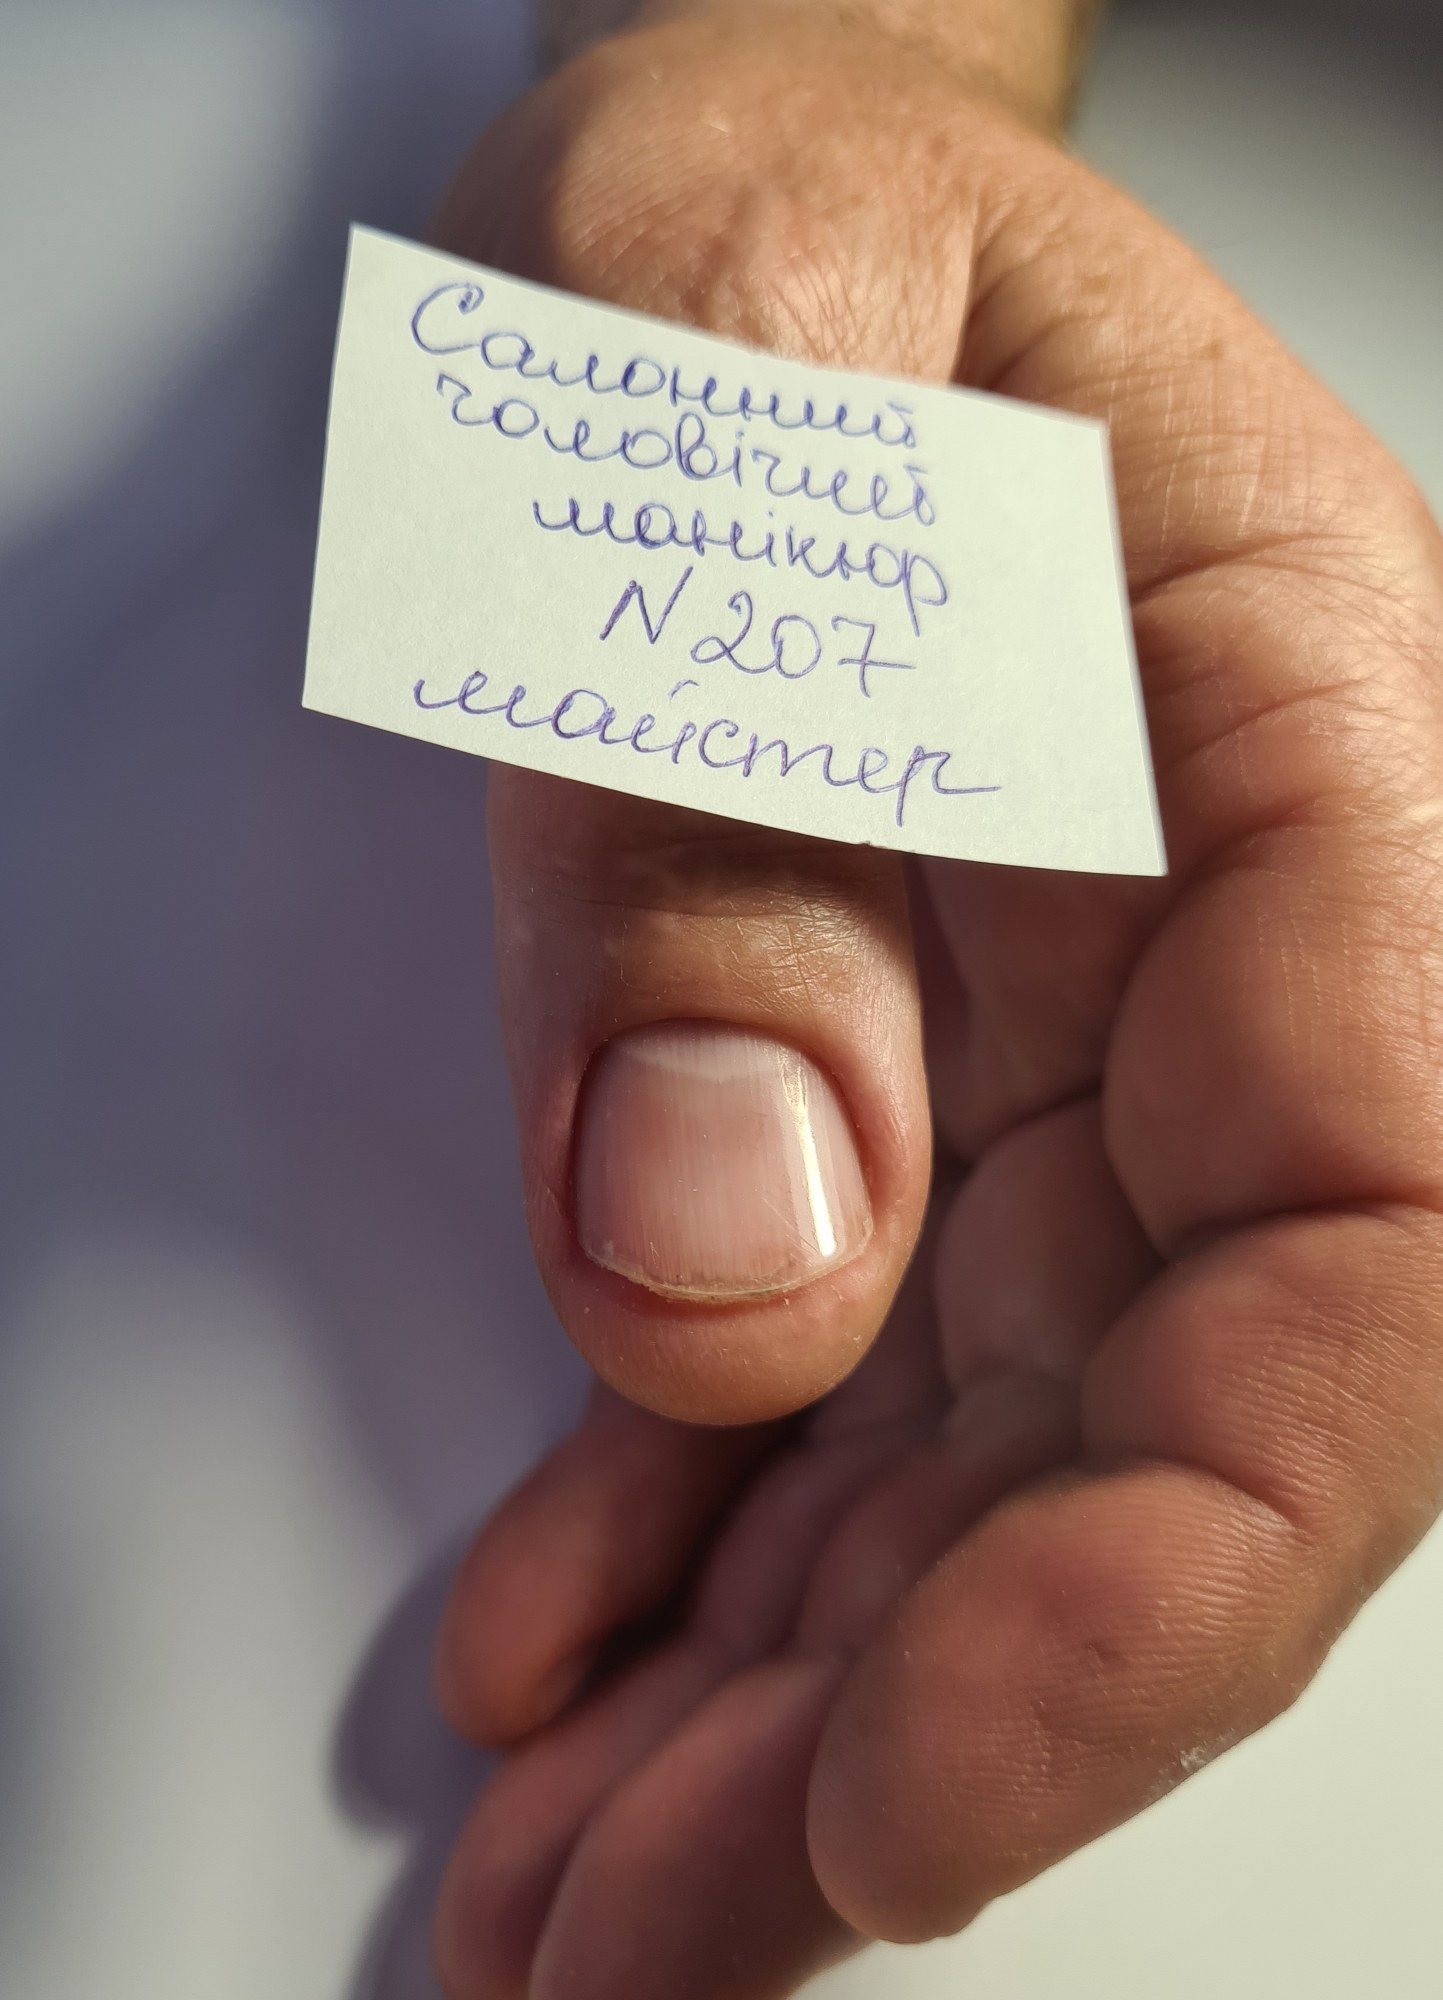 Салонний
чоловічий
манікюр
N 207
майстер